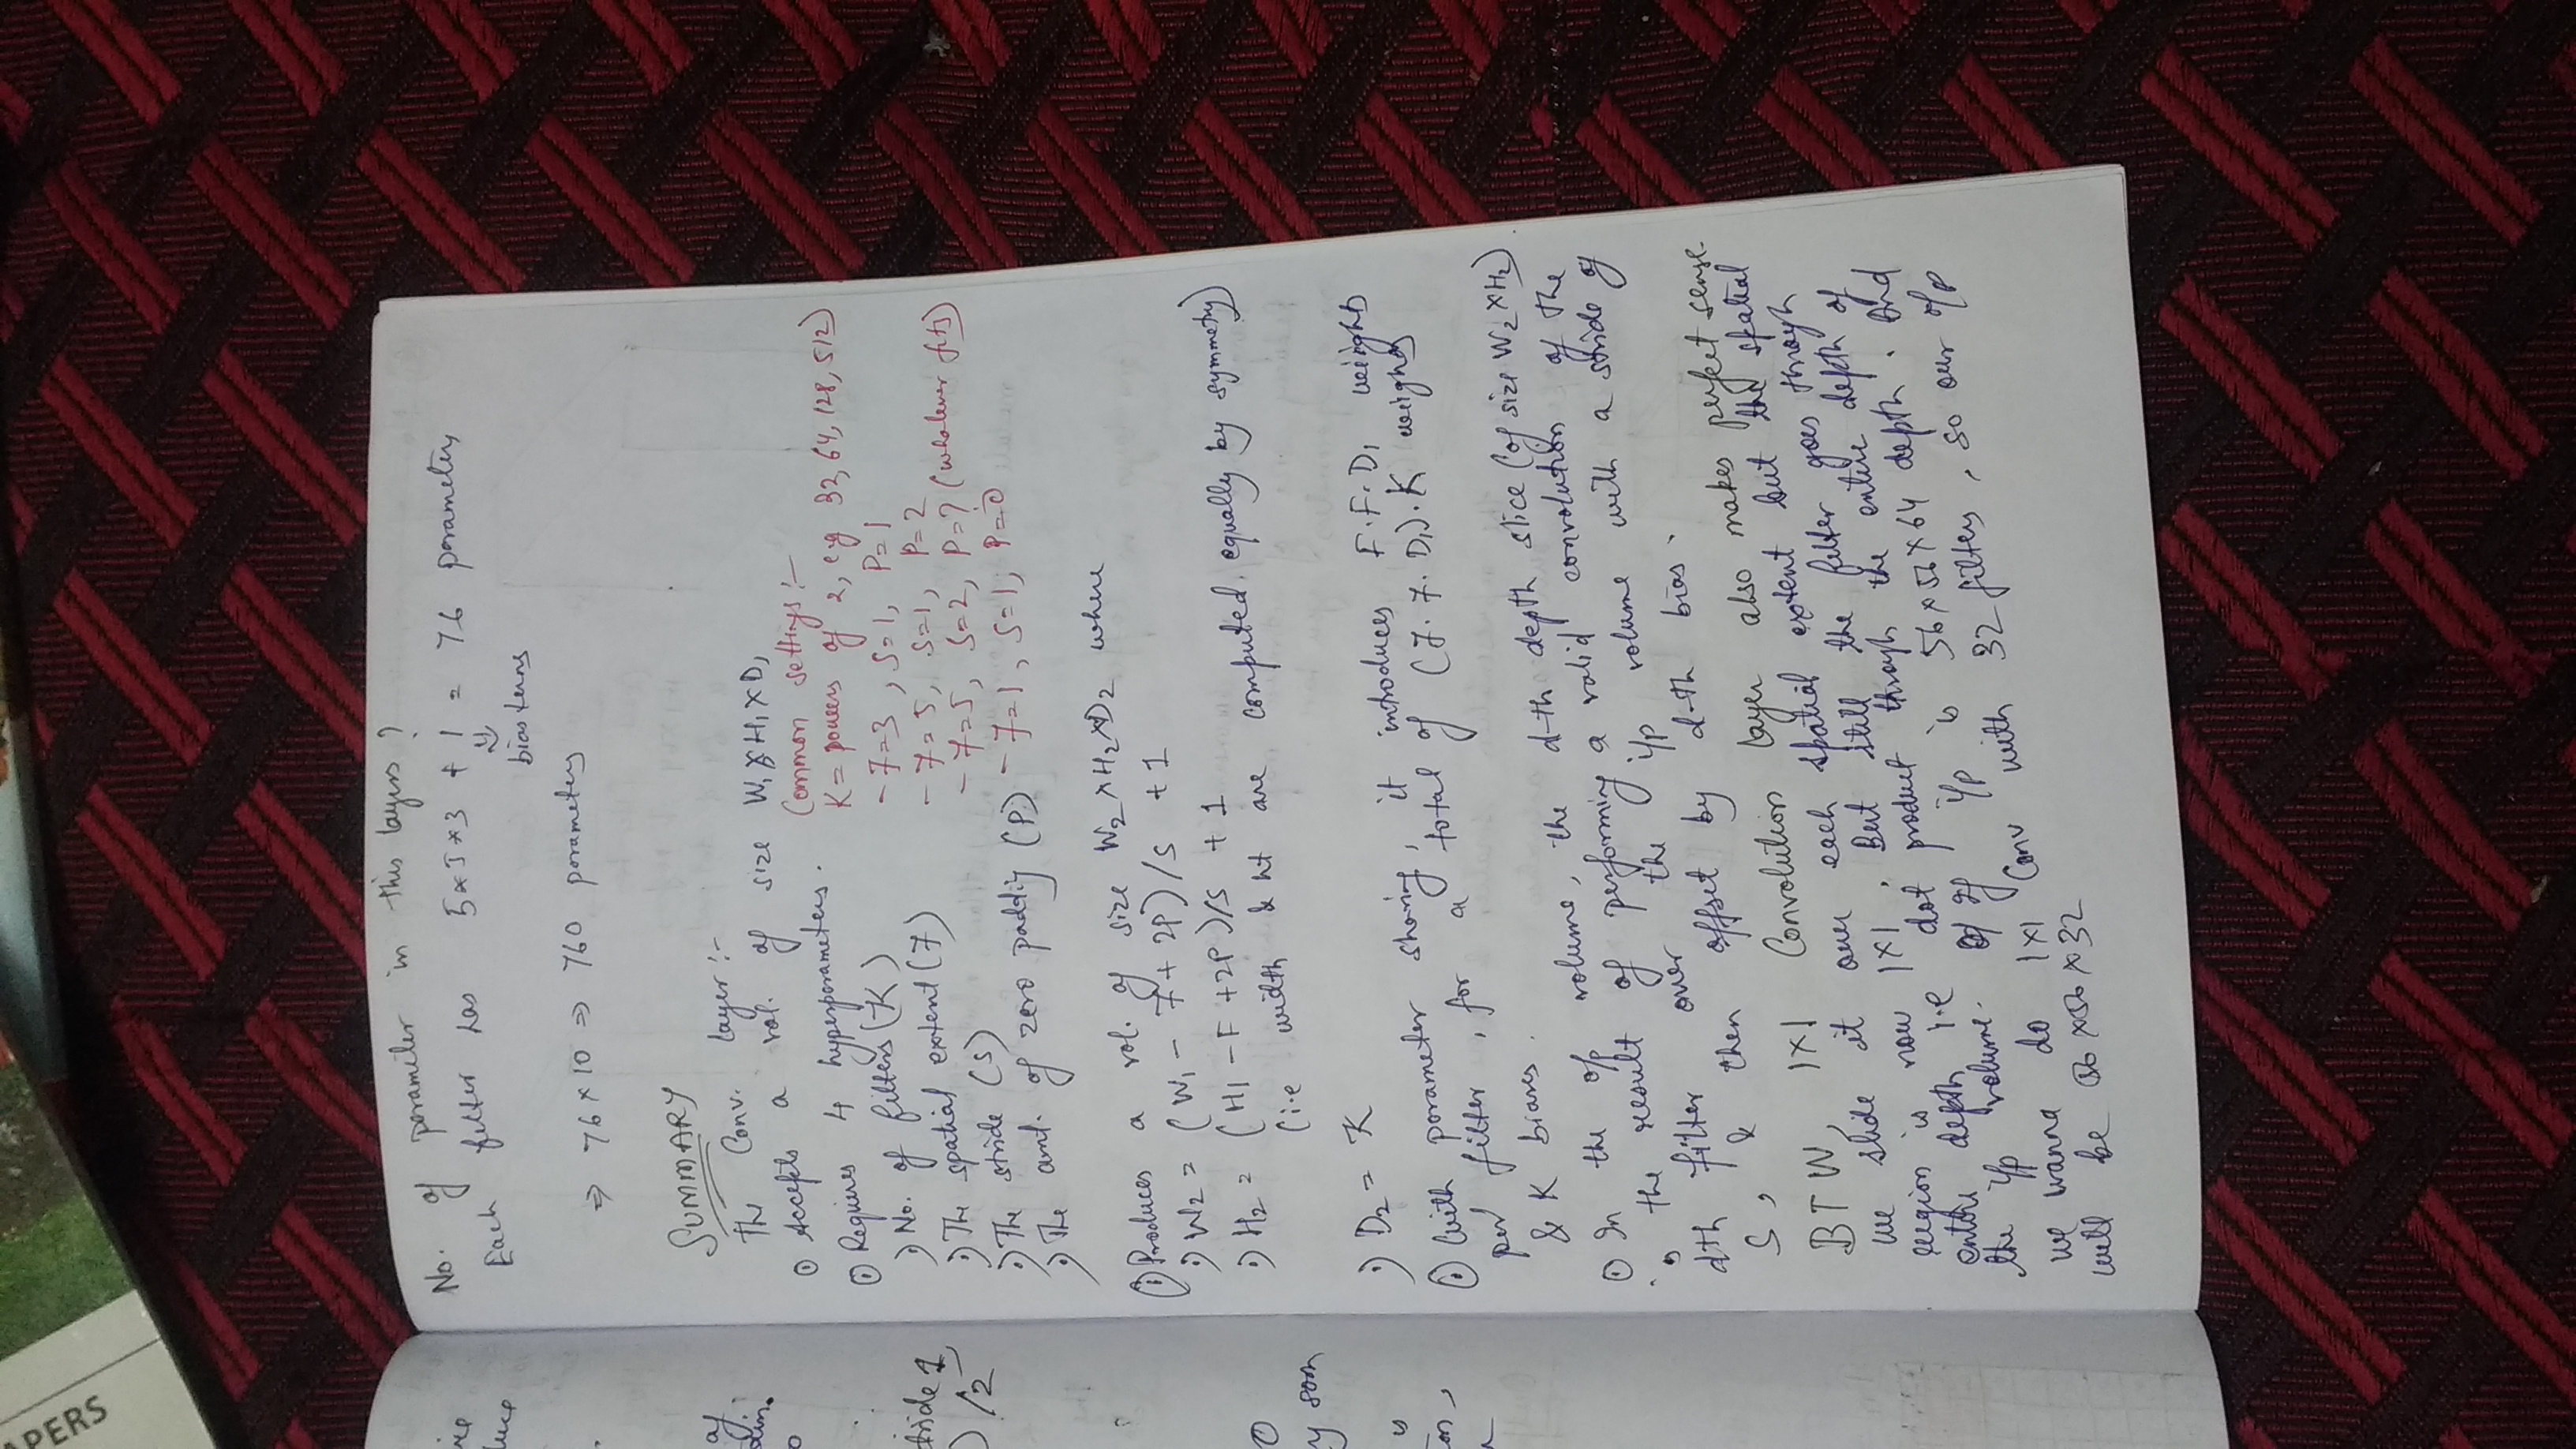 No. of parameter in this layers?
Each filter has 5*5*3 + 1 = 76 parameters
bias term
=> 76 × 10 => 760 parameters
SUMMARY
The Conv. layer :-
Accepts a vol. of size W1×H1×D1
Requires 4 hyperparameters.
No. of filters (K)
The spatial extent (F)
The stride (S)
The amt. of zero padding (P)
Common settings :-
K = powers of 2, eg 32, 64, 128, 512)
- F=3, S=1, P=1
- F=5, S=1, P=2
- F=5, S=2, P=? (whatever fits)
- F=1, S=1, P=0
Produces a vol. of size W2×H2×D2 where
W2 = (W1 - F + 2P)/S + 1
H2 = (H1 - F + 2P)/S + 1
(i.e width & ht are computed equally by symmetry)
D2 = K
With parameter sharing, it introduces F.F.D1 weights
per filter, for a total of (F.F.D1).K weights
& K biases.
In the o/p volume, the d-th depth slice (of size W2×H2)
is the result of performing a valid convolution of the
dth filter over the i/p volume with a stride of
S, & then offset by d-th bias.
BTW, 1×1 Convolution layer also makes perfect sense
we slide it over each spatial extent but the spatial
region is now 1×1, But still the filter goes through
entire depth i.e dot product through the entire depth of
the i/p volume. If i/p is 56×56×64 depth. And
we wanna do 1×1 Conv with 32 filters, so our o/p
will be 56×56×32
PAPERS
stride 1
/2
son